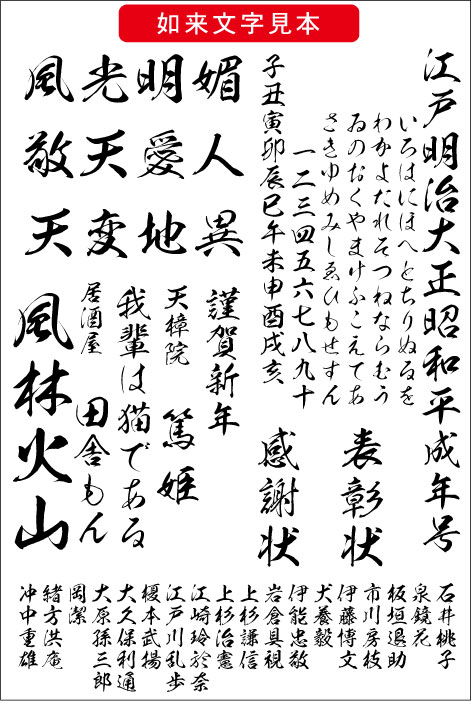 如来文字見本
江戸明治大正昭和平成年号
いろはにほへとちりぬるを
わかよたれそつねならむう
ゐのおくやまけふこえてあ
さきゆめみしゑひもせすん
一二三四五六七八九十
子丑寅卯辰巳午未申酉戌亥
媚人異
明愛地
光天変
風敬天
表彰状
感謝状
謹賀新年
天樟院 篤姫
我輩は猫である
居酒屋 田舎もん
風林火山
石井桃子
泉鏡花
板垣退助
市川房枝
伊藤博文
犬養毅
伊能忠敬
岩倉具視
上杉謙信
上杉治憲
江崎玲於奈
江戸川乱歩
榎本武揚
大久保利通
大原孫三郎
岡潔
緒方洪庵
沖中重雄